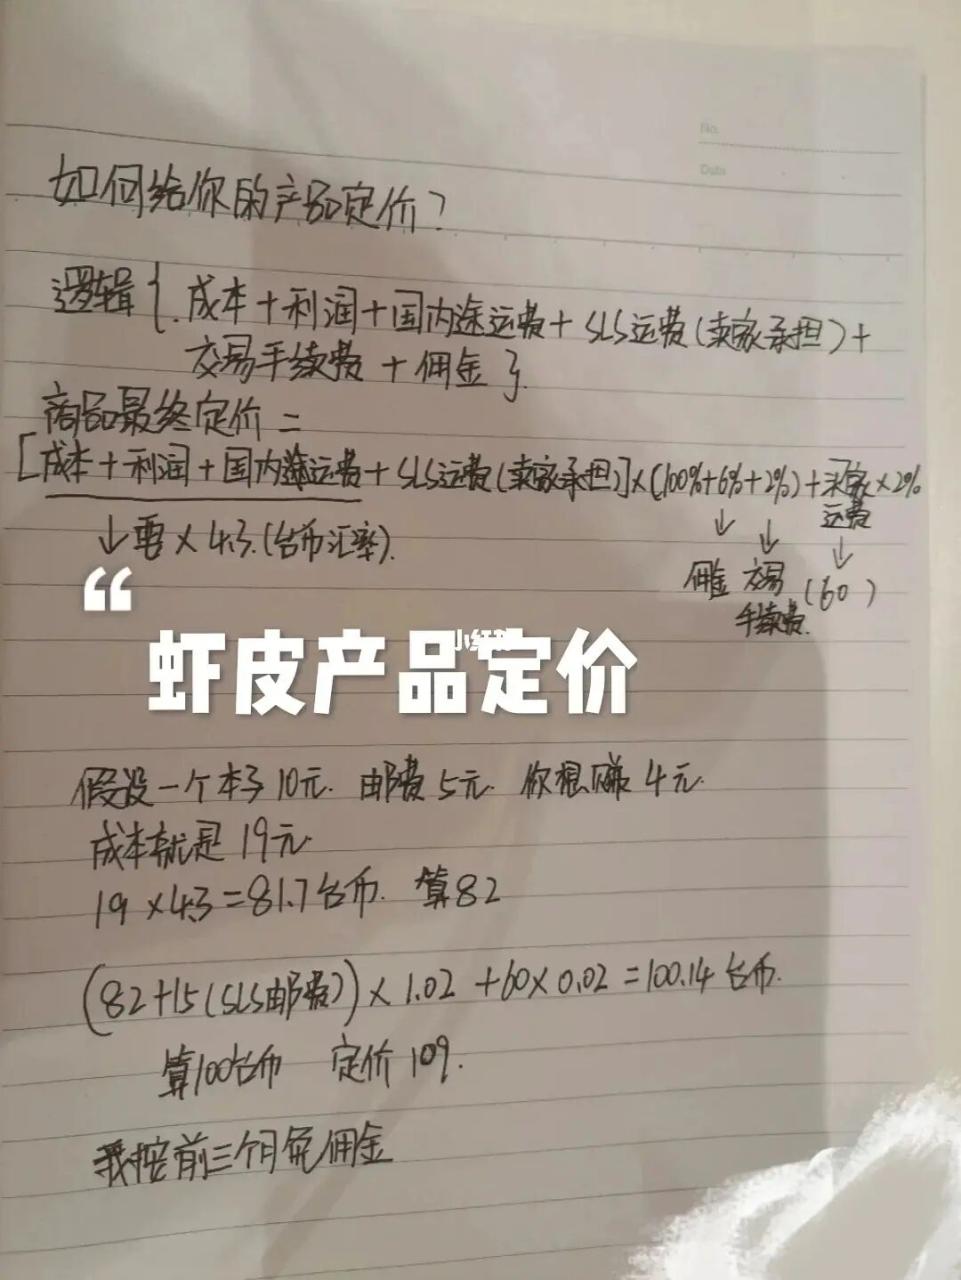 No.
Date
如何给你的产品定价?
逻辑{.成本+利润+国内途运费+SLS运费(卖家承担)+
交易手续费+佣金}.
商品最终定价=
[成本+利润+国内途运费+SLS运费(卖家承担)]×(100%+6%+2%)+买家×2%
运费
↓要×4.3.(台币汇率).
↓ ↓ ↓
佣金 交易 (60)
手续费.
“
虾皮产品定价
小红书
假设一个本子10元. 邮费5元. 你想赚4元.
成本就是19元
19×4.3=81.7台币. 算82
(82+15(SLS邮费))×1.02+60×0.02=100.14台币.
算100台币 定价109.
我按前三个月免佣金